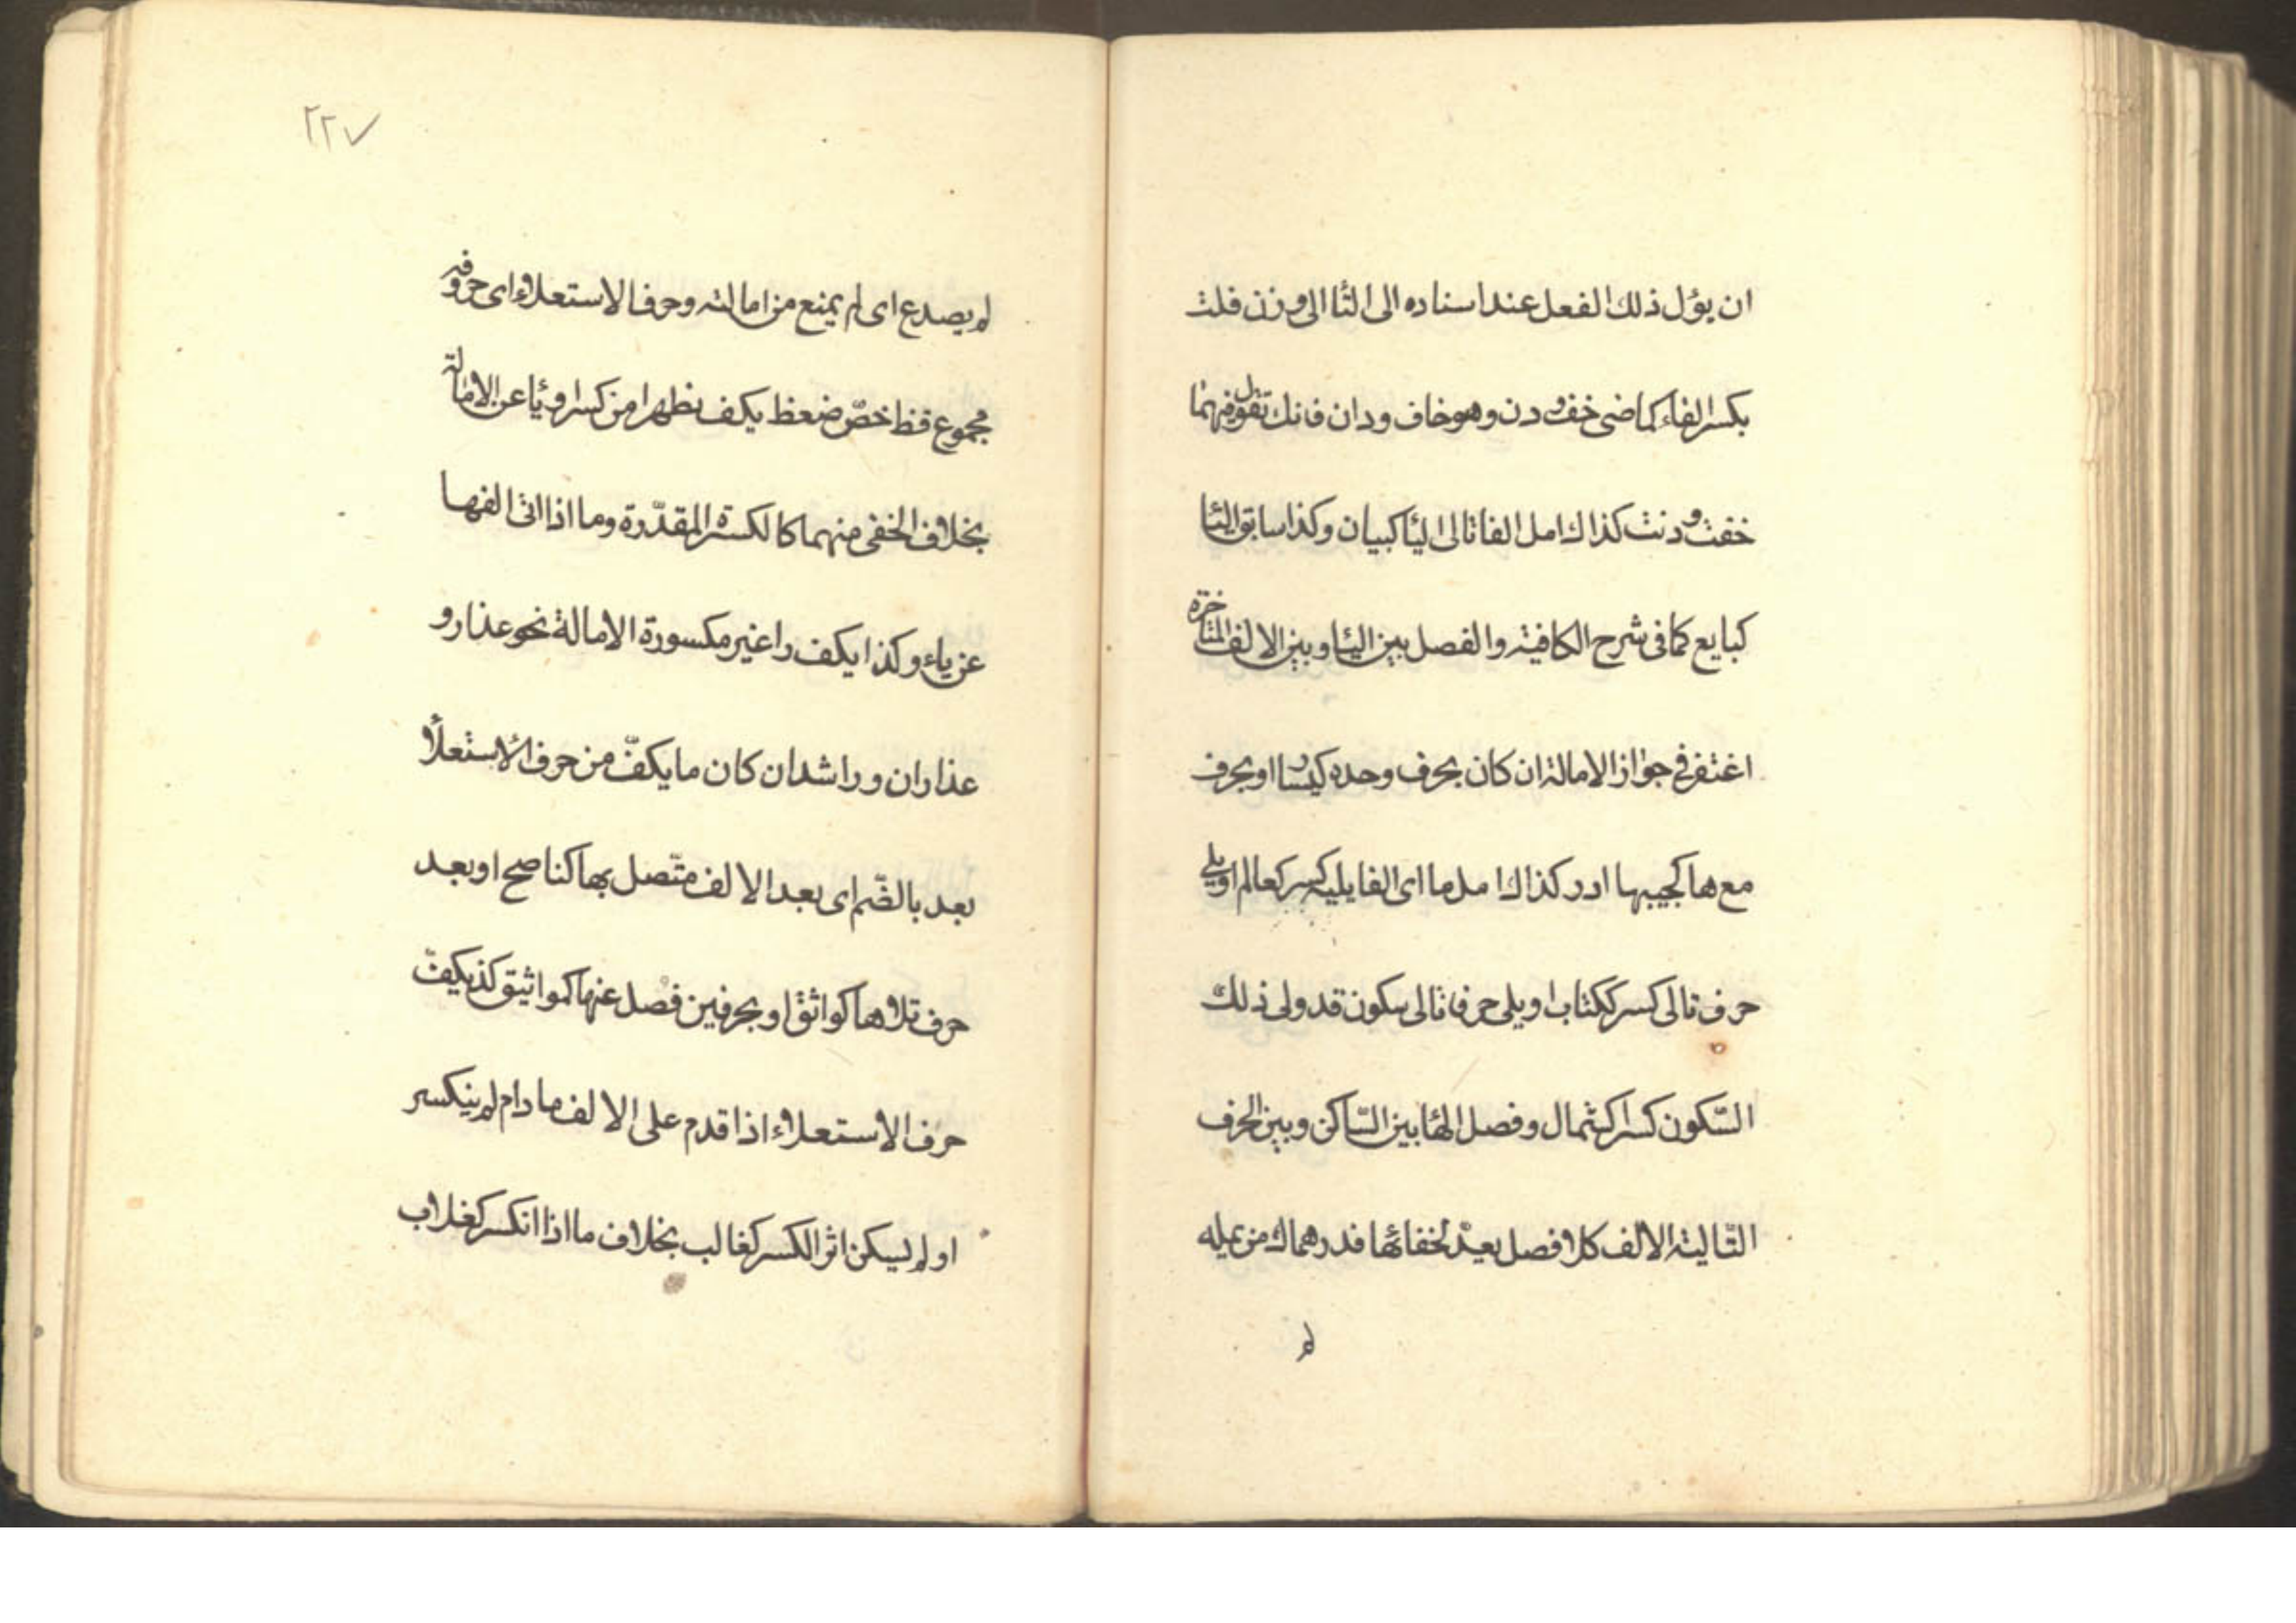 ان يؤل ذلك الفعل عند اسناده الى التا الى وزن فلت
بكسر الفاء كماضى خف و دن وهو خاف ودان فانك تقول فيهما
خفت و دنت كذاك امل الفا تالى اليا كبيان وكذا سابق اليا
كبايع كما فى شرح الكافية والفصل بين اليا وبين الالف المتاخرة
اغتفر فى جواز الامالة ان كان بحرف وحده كيسار او بحرف
مع ها كجيبها ادر كذاك امل ما اى الفا يليه كسر كعالم او يلى
حرف تالى كسر ككتاب او يلى حرفا تالى سكون قد ولى ذلك
السّكون كسرا كشملال وفصل الها بين السّاكن وبين الحرف
التّالية الالف كلا فصل يعدّ لخفائها فدرهماك من يمله
لم
٢٢٧
لم يصد ع اى لم يمنع من امالته وحرف الاستعلاء اى حروفه
مجموع قظ خصّ ضغط يكف مظهرا من كسر او يا عن الامالة
بخلاف الخفى منهما كالكسرة المقدّرة وما اذا اتى الفها
عن ياء وكذا يكف را غير مكسورة الامالة نحو عذار و
عذاران و راشد ان كان ما يكفّ من حرف الاستعلا
بعد بالضّم اى بعد الالف متّصل بها كناصح او بعد
حرف تلاها كواثق او بحرفين فصل عنها كمواثيق كذا يكفّ
حرف الاستعلاء اذا قدم على الالف ما دام لم ينكسر
او لم يسكن اثر الكسر كغالب بخلاف ما اذا انكسر كغلاب